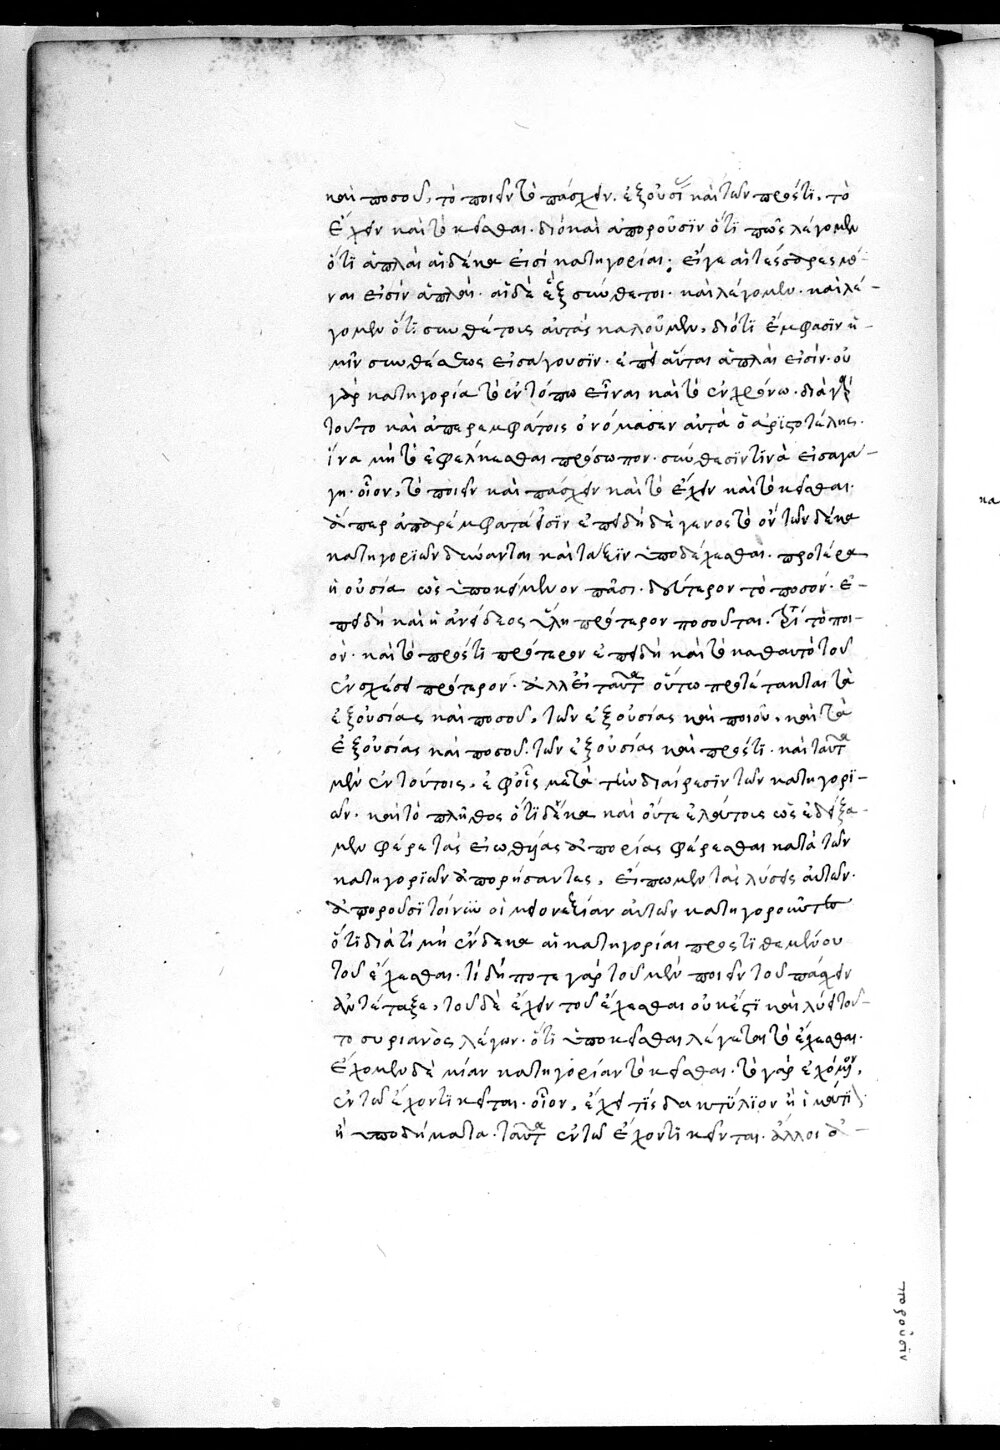 καὶ ποσοῦ, τὸ ποιεῖν τὸ πάσχειν. ἐξ οὐσί καὶ τῶν πρός τι, τὸ
ἔχειν καὶ τὸ κεῖσθαι. διὸ καὶ ἀποροῦσϊν ὅτϊ πῶς λέγομεν
ὅτϊ ἁπλαῖ αἱ δέκα εἰσὶ κατηγορίαι; εἴγε αἱ τέσσαρες μό-
ναι εἰσὶν ἁπλαῖ. αἱ δὲ ἓξ σύνθετοι. καὶ λέγομεν. καὶ λέ-
γομεν ὅτϊ συνθέτους αὐτὰς καλοῦμεν, διότϊ ἔμφασϊν ἡ-
μῖν συνθέσεως εἰσάγουσϊν. ἐπεὶ αὗται ἁπλαῖ εἰσίν. οὐ
γὰρ κατηγορία τὸ ἐν τόπω εἶναι καὶ τὸ ἐν χρόνω. διὰ γὰρ
τοῦτο καὶ ἀπαρεμφάτοις ὀνόμασεν αὐτὰ ὁ ἀρϊστοτέλης.
ἵνα μὴ τὸ ἐφέλκεσθαι πρόσωπον. σύνθεσϊν τϊνὰ εἰσαγά-
γη. οἷον, τὸ ποιεῖν καὶ πάσχειν καὶ τὸ ἔχειν καὶ τὸ κεῖσθαι.
ἅπερ ἀπαρέμφατά εἰσϊν ἐπειδὴ δὲ γένος τὸ ὂν τῶν δέκα
κατηγορϊῶν δύνανται καὶ τάξϊν ὑποδέχεσθαι. προτέρα
ἡ οὐσία ὡς ὑποκείμενον πᾶσι. δεύτερον τὸ ποσόν. ἐ-
πειδὴ καὶ ἡ ἀνείδεος ὕλη πρότερον ποσοῦται. τὸ ποι-
όν. καὶ τὸ πρός τι πρότερον ἐπειδὴ καὶ τὸ καθαυτὸ τοῦ
ἐν σχέσει πρότερον. ἀλλ' εἰ ταῦτα οὕτω προτέτακται τὰ
ἐξ οὐσίας καὶ ποσοῦ, τῶν ἐξ οὐσίας καὶ ποιοῦ, καὶ τὰ
ἐξ οὐσίας καὶ ποσοῦ. τῶν ἐξ οὐσίας καὶ πρός τι. καὶ ταῦτα
μὲν ἐν τούτοις. ἐφ' οἷς μετὰ τὴν διαίρεσϊν τῶν κατηγορϊ-
ῶν. καὶ τὸ πλῆθος ὅτϊ δέκα καὶ οὔτε ἐλάττους ὡς ἐδείξα-
μεν φέρε τὰς εἰωθυίας ἀπορίας φέρεσθαι κατὰ τῶν
κατηγορϊῶν ἀπορήσαντες, εἴπωμεν τὰς λύσεις αὐτῶν.
ἀποροῦσϊ τοίνυν οἱ πλεονεξίαν αὐτῶν κατηγοροῦντες
ὅτϊ διὰ τί μὴ ἕνδεκα αἱ κατηγορίαι προστϊθεμένου
τοῦ ἔχεσθαι. τί δή ποτε γὰρ τοῦ μὲν ποιεῖν τοῦ πάσχειν
ἀντέταξε, τοῦ δὲ ἔχειν τοῦ ἔχεσθαι οὐκέτϊ καὶ λύει τοῦ-
το συριανὸς λέγων. ὅτι ὑπὸ κεῖσθαι λέγεται τὸ ἔχεσθαι.
ἔχομεν δὲ μίαν κατηγορίαν τὸ κεῖσθαι. τὸ γὰρ ἐχόμενον,
ἐν τῶ ἔχοντϊ κεῖται. οἷον, ἔχει τϊς δακτύλϊον ἢ ἱμάτϊ
ἢ ὑποδήματα. ταῦτα ἐν τῶ ἔχοντϊ κεῖνται. ἄλλοι ἀ-